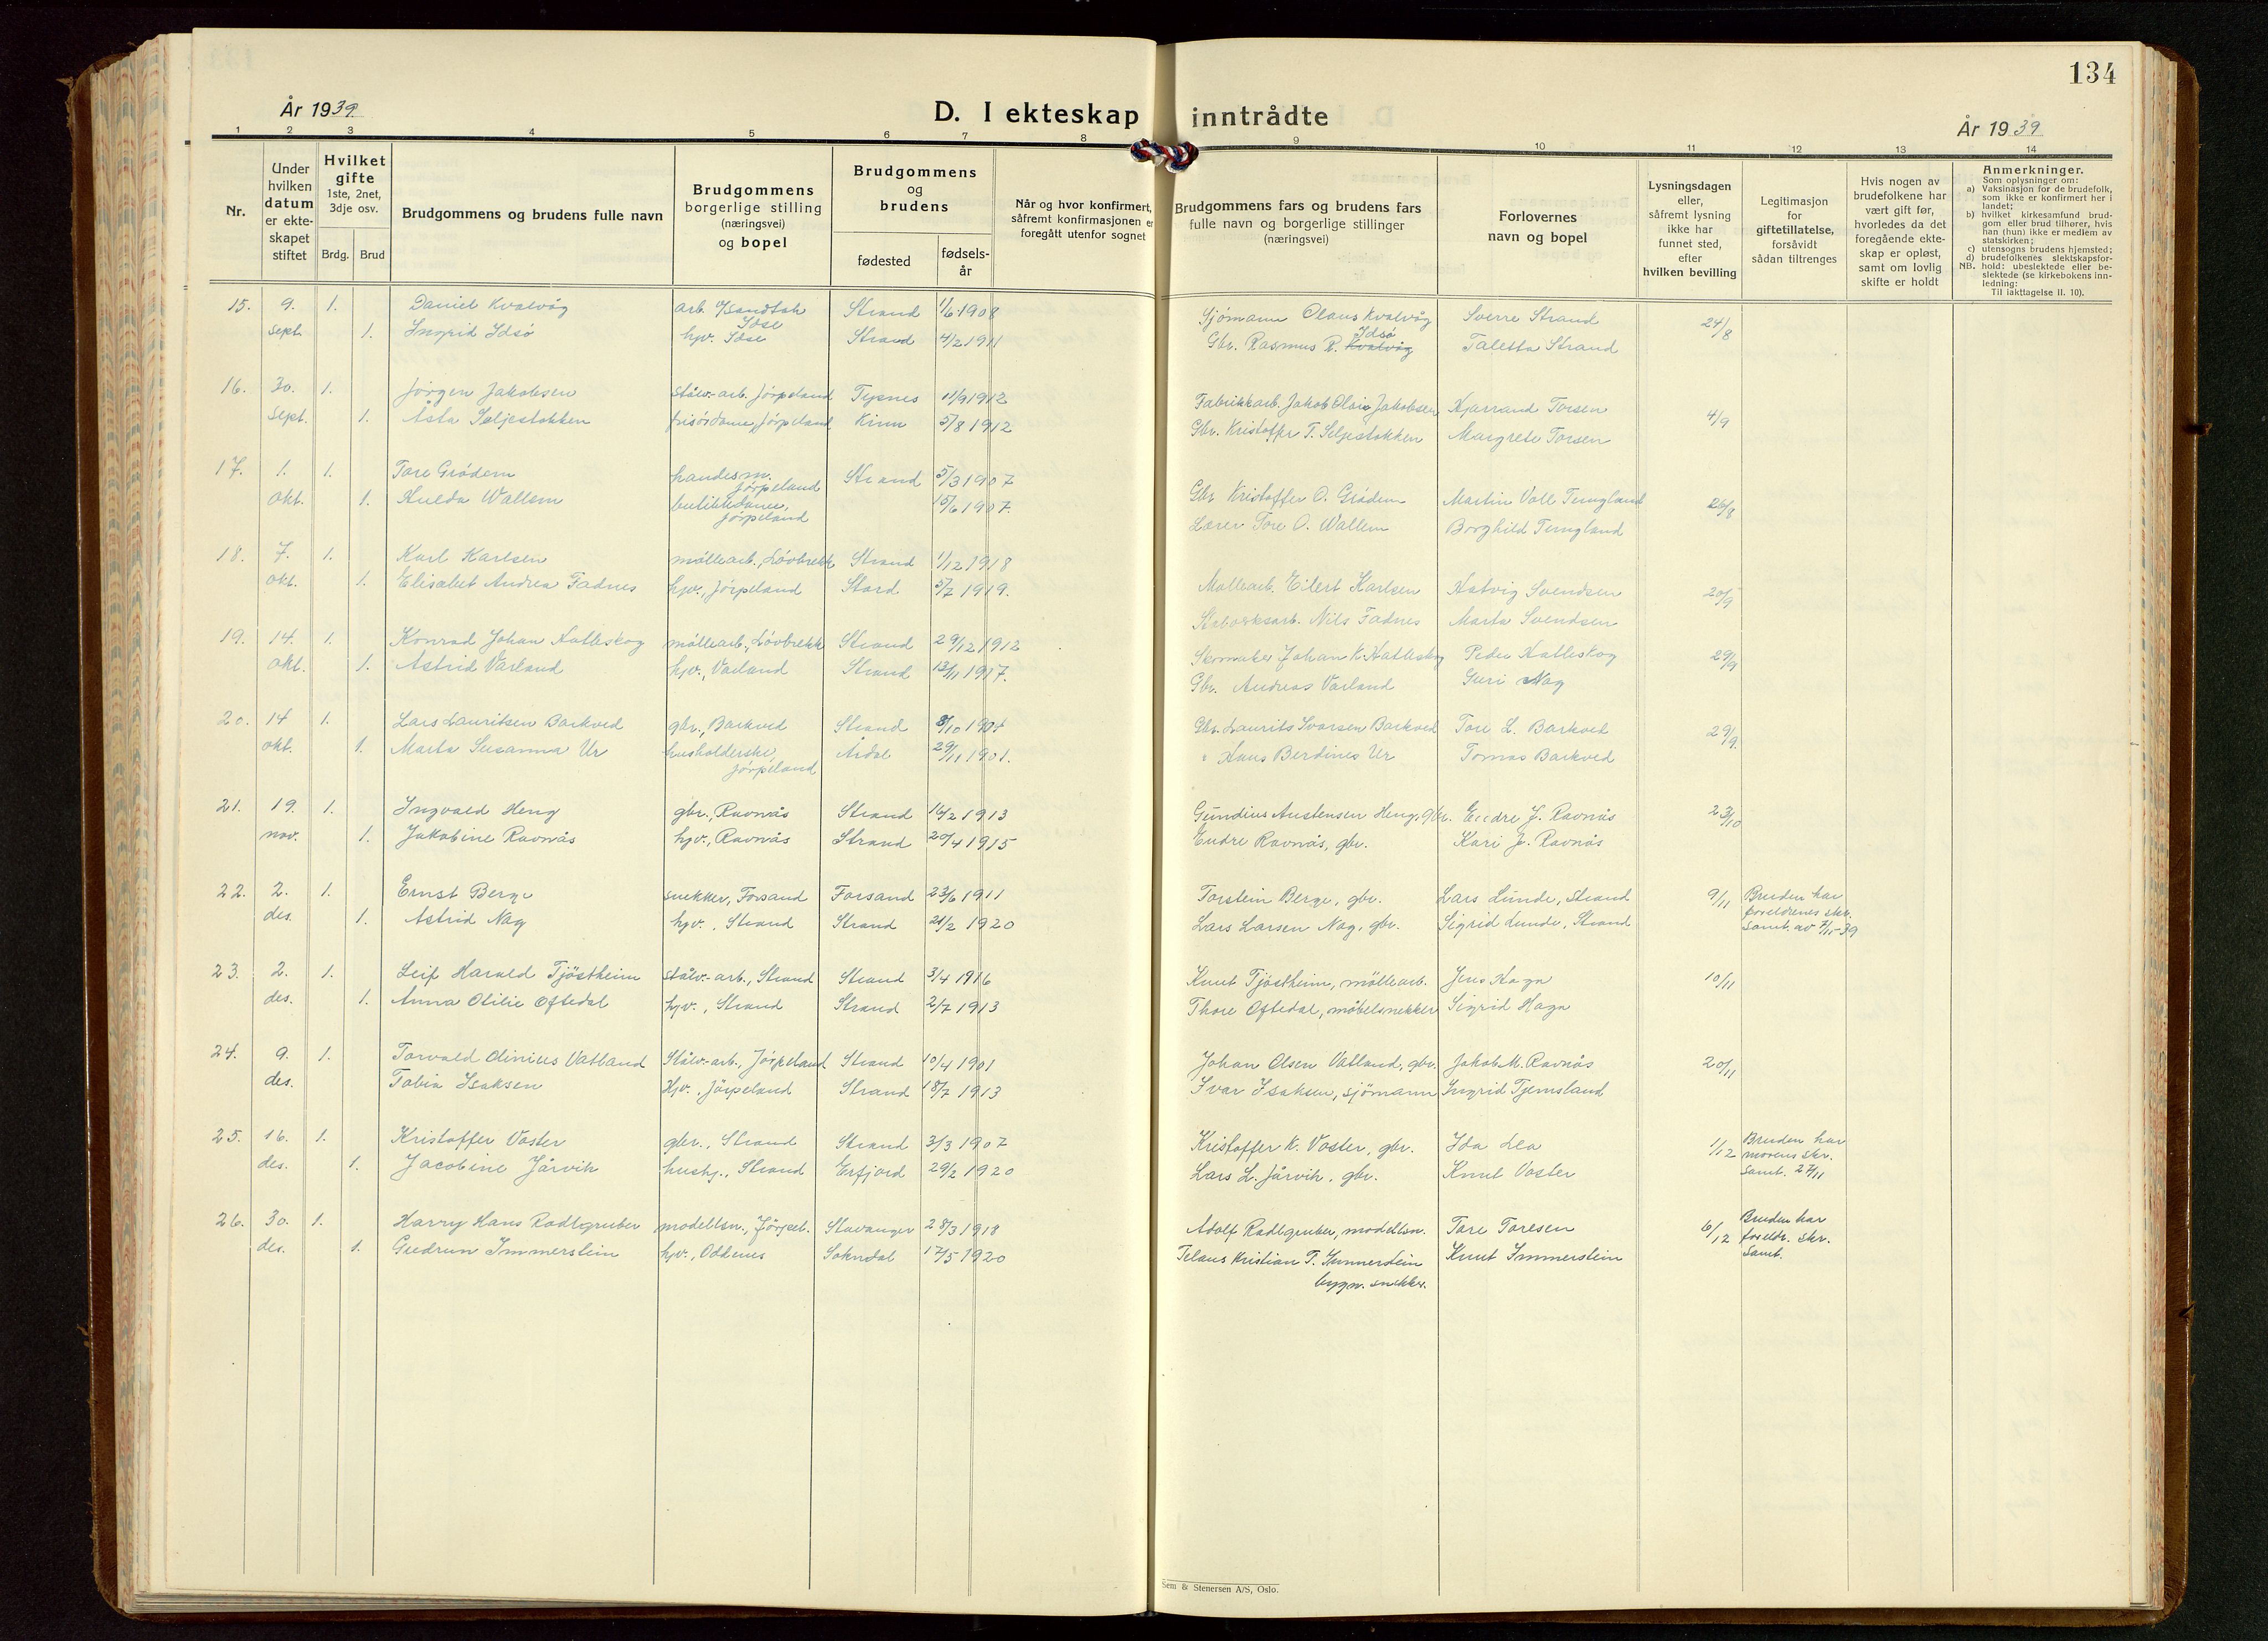 134
År 1939.
D. I ekteskap inntrådte
År 1939
1 2 3 4 5 6 7 8 9 10 11 12 13 14
Nr.
Under hvilken datum er ekteskapet stiftet
Hvilket gifte 1ste, 2net, 3dje osv.
Brdg. Brud
Brudgommens og brudens fulle navn
Brudgommens borgerlige stilling (næringsvei) og bopel
Brudgommens og brudens
fødested
fødselsår
Når og hvor konfirmert, såfremt konfirmasjonen er foregått utenfor sognet
Brudgommens fars og brudens fars fulle navn og borgerlige stillinger (næringsvei)
Forlovernes navn og bopel
Lysningsdagen eller, såfremt lysning ikke har funnet sted, efter hvilken bevilling
Legitimasjon for giftetillatelse, forsåvidt sådan tiltrenges
Hvis nogen av brudefolkene har vært gift før, hvorledes da det foregående ekteskap er opløst, samt om lovlig skifte er holdt
Anmerkninger.
Som oplysninger om:
a) Vaksinasjon for de brudefolk, som ikke er konfirmert her i landet;
b) hvilket kirkesamfund brudgom eller brud tilhører, hvis han (hun) ikke er medlem av statskirken;
c) utensogns brudens hjemsted;
d) brudefolkenes slektskapsforhold: ubeslektede eller beslektede (se kirkebokens innledning:
NB. Til iakttagelse II. 10).
15. 9. 1. Daniel Kvalvåg arb. Strand 1/6 1908 Sjömann Olaus Kvalvåg Sverre Strand 24/8
Idse Idsö
sept. 1. Ingrid Idsö hjv. Idse Strand 4/2 1911 Gbr. Rasmus R. Kvalvåg Taletta Strand
16. 30. 1. Jörgen Jakobsen stålv.-arb. Jörpeland 11/9 1912 Fabrikkarb. Jakob Jakobsen Torsen 4/9
sept. 1. Åsta Seljestokken frisördame, Jörpeland Kinn 5/8 1912 Gbr. Kristoffer T. Seljestokken Margrete Torsen
17. 1. 1. Tore Grödem handesm. Jörpeland Strand 5/3 1907 Gbr. Kristoffer O. Grödem Martin Voll Tungland 26/8
okt. 1. Hulda Wallem butikkdame, Jörpeland 15/6 1907. Lærer Tore O. Wallem Borghild Tungland
18. 7. 1. Karl Karlsen möllearb., Lövbrekk Strand 1/12 1918 Möllearb. Eilert Karlsen Svendsen 20/9
okt. 1. Elisabet Andrea Fadnes hjv., Jörpeland Stord 5/7 1919. Nils Fadnes Marta Svendsen
19. 14. 1. Konrad Johan Hatleskog möllearb., Lövbrekk Strand 29/12 1912 Skomaker Johan K. Hatleskog Peder Hatleskog 29/9
okt. 1. Astrid Varland hjv., Varland Strand 13/11 1917. Gbr. Andreas Varland Guri Nag
20. 14 1. Lars Lauritsen Barkved gbr., Barkved Strand 8/10 1904 Gbr. Laurits Barkved Tore L. Barkved 29/9.
okt. 1. Marta Susanna Ur husholderske, Jörpeland Årdal 29/11 1901. " Hans Berdines Ur Tomas Barkved
21. 19. 1. Ingvald Heng gbr., Ravnås Strand 16/2 1913 Gundius Austensen Heng, gbr. Endre J. Ravnås 23/10
nov. 1. Jakobine Ravnås hjv., Ravnås Strand 20/4 1915 Endre Ravnås, gbr. Kari J. Ravnås
22. 2. 1. Ernst Berge snekker, Forsand Forsand 23/6 1911 Torstein Berge, gbr. Lars Lunde, Strand 9/11 Bruden har
foreldrenes skr.
des. 1. Astrid Nag hjv., Strand Strand 21/2 1920 Lars Larsen Nag, gbr. Sigrid Lunde, Strand samt. av
23. 2. 1. Leif Harald Tjöstheim stålv.-arb., Strand Strand 3/4 1916 Knut Tjöstheim, möllearb. Jens Haga 10/11
des. 1. Anna Otilie Oftedal hjv., Strand Strand 2/7 1913 Thore Oftedal, möbelsnekker Sigrid Haga
24. 9. 1. Torvald Olinius Vatland Stålv.-arb., Jörpeland Strand 10/4 1901 Johan Olsen Vatland, gbr. Jakob M. Ravnås 20/11
des. Tobia Isaksen Hjv., Jörpeland Strand 18/7 1913 Ivar Isaksen, sjömann Ingrid Tjemsland
25. 16. 1. Kristoffer Voster gbr., Strand Strand 3/3 1907 Kristoffer K. Voster, gbr. Ida Lea 1/12 Bruden har
morens skr.
des. 1. Jacobine Jårvik hushj., Strand Erfjord 29/2 1920 Lars L. Jårvik, gbr. Knut Voster samt. 27/11
26. 30. 1. Harry Hans Radlgruber modellsn., Jörpel. Stavanger 28/3 1918 Adolf Radlgruber, modellsn. Tore Toresen 6/12 Bruden har
foreldr. skr.
des. 1. Gudrun Immerstein hjv., Oddenes Sokndal 17/5 1920 Telaus Kristian T. Immerstein Knut Immerstein samt.
bygn. snekker.
Sem & Stenersen A/S, Oslo.